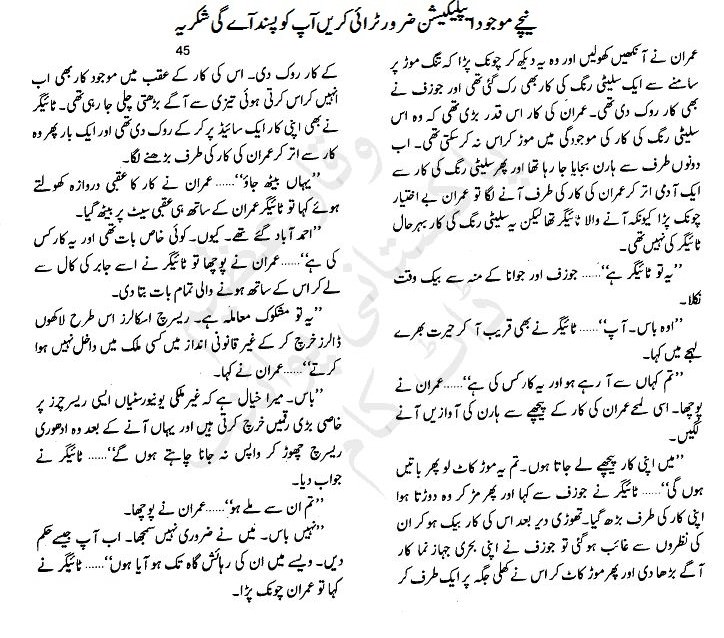 نیچے موجود ایپلیکیشن ضرور ٹرائی کریں آپ کو پسند آے گی شکریہ
45
عمران نے آنکھیں کھولیں اور وہ یہ دیکھ کر چونک پڑا کہ تنگ موڑ پر
سامنے سے ایک سلیٹی رنگ کی کار بھی رک گئی تھی اور جوزف نے
بھی کار روک دی تھی۔ عمران کی کار اس قدر بڑی تھی کہ وہ اس
سلیٹی رنگ کی کار کی موجودگی میں موڑ کراس نہ کر سکتی تھی۔ اب
دونوں طرف سے ہارن بجایا جا رہا تھا اور پھر سلیٹی رنگ کی کار سے
ایک آدمی اتر کر عمران کی کار کی طرف آنے لگا تو عمران بے اختیار
چونک پڑا کیونکہ آنے والا ٹائیگر تھا لیکن یہ سلیٹی رنگ کی کار بہرحال
ٹائیگر کی نہیں تھی۔
’’یہ تو ٹائیگر ہے‘‘...... جوزف اور جوانا کے منہ سے بیک وقت
نکلا۔
’’اوہ باس۔ آپ‘‘...... ٹائیگر نے بھی قریب آ کر حیرت بھرے
لہجے میں کہا۔
’’تم کہاں سے آ رہے ہو اور یہ کار کس کی ہے‘‘......عمران نے
پوچھا۔ اسی لمحے عمران کی کار کے پیچھے سے ہارن کی آوازیں آنے
لگیں۔
’’میں اپنی کار پیچھے لے جاتا ہوں۔ تم یہ موڑ کاٹ لو پھر باتیں
ہوں گی‘‘...... ٹائیگر نے جوزف سے کہا اور پھر مڑ کر وہ دوڑتا ہوا
اپنی کار کی طرف بڑھ گیا۔ تھوڑی دیر بعد اس کی کار بیک ہو کر ان
کی نظروں سے غائب ہو گئی تو جوزف نے اپنی بحری جہاز نما کار
آگے بڑھا دی اور پھر موڑ کاٹ کر اس نے کھلی جگہ پر ایک طرف کر
کے کار روک دی۔ اس کی کار کے عقب میں موجود کار بھی اب
انہیں کراس کرتی ہوئی تیزی سے آگے بڑھتی چلی جا رہی تھی۔ ٹائیگر
نے بھی اپنی کار ایک سائیڈ پر کر کے روک دی تھی اور ایک بار پھر وہ
کار سے اتر کر عمران کی کار کی طرف بڑھنے لگا۔
’’یہاں بیٹھ جاؤ‘‘...... عمران نے کار کا عقبی دروازہ کھولتے
ہوئے کہا تو ٹائیگر عمران کے ساتھ ہی عقبی سیٹ پر بیٹھ گیا۔
’’احمد آباد گئے تھے۔ کیوں۔ کوئی خاص بات تھی اور یہ کار کس
کی ہے‘‘......عمران نے پوچھا تو ٹائیگر نے اسے جابر کی کال سے
لے کر اس کے ساتھ ہونے والی تمام بات بتا دی۔
’’یہ تو مشکوک معاملہ ہے۔ ریسرچ اسکالرز اس طرح لاکھوں
ڈالرز خرچ کر کے غیر قانونی انداز میں کسی ملک میں داخل نہیں ہوا
کرتے‘‘......عمران نے کہا۔
’’باس۔ میرا خیال ہے کہ غیر ملکی یونیورسٹیاں ایسی ریسرچرز پر
خاصی بڑی رقمیں خرچ کرتی ہیں اور یہاں آنے کے بعد وہ ادھوری
ریسرچ چھوڑ کر واپس نہ جانا چاہتے ہوں گے‘‘...... ٹائیگر نے
جواب دیا۔
’’تم ان سے ملے ہو‘‘......عمران نے پوچھا۔
’’نہیں باس۔ میں نے ضروری نہیں سمجھا۔ اب آپ جیسے حکم
دیں۔ ویسے میں ان کی رہائش گاہ تک ہو آیا ہوں‘‘...... ٹائیگر نے
کہا تو عمران چونک پڑا۔